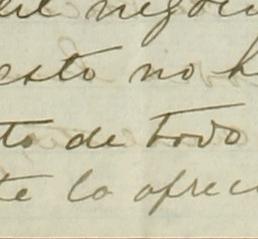 del negoci
esto no h
to de todo
te lo ofreci